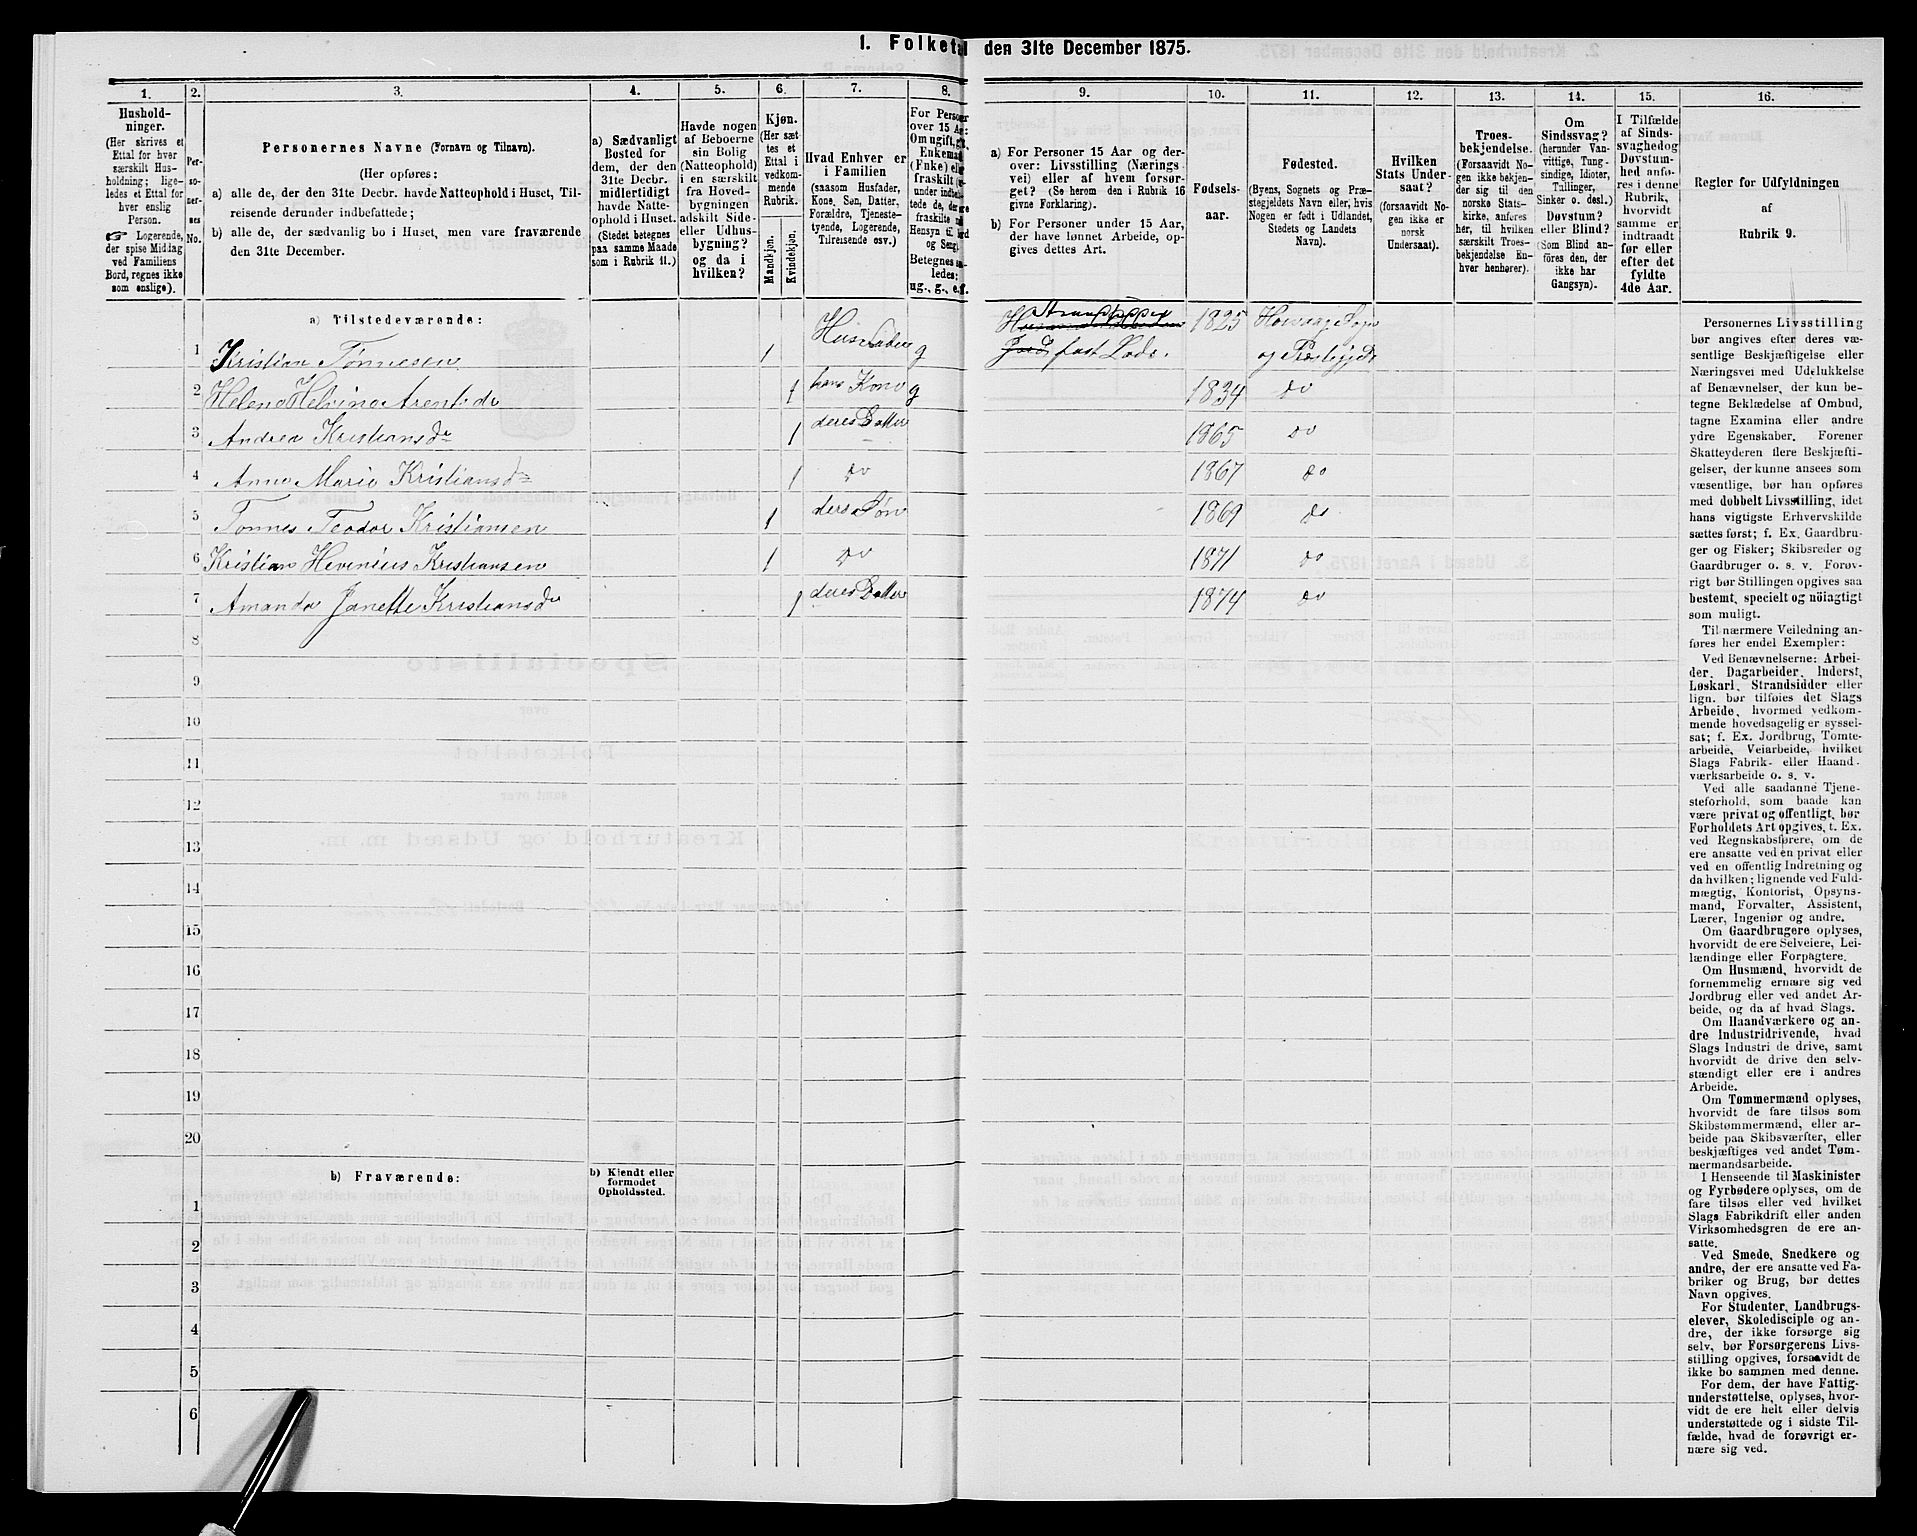 1. Folketal den 31te December 1875.
1. 2. 3. 4. 5. 6. 7. 8. 9. 10. 11. 12. 13. 14. 15. 16.
Hushold-
ninger.
(Her skrives et
Ettal for hver
særskilt Hus-
holdning; lige-
ledes et Ettal for
hver enslig
Person.
☞ Logerende,
der spise Middag
ved Familiens
Bord, regnes ikke
som enslige).
Per-
so-
ner-
nes
No.
Personernes Navne (Fornavn og Tilnavn).
(Her opføres:
a) alle de, der den 31te Decbr. havde Natteophold i Huset, Til-
reisende derunder indbefattede;
b) alle de, der sædvanlig bo i Huset, men vare fraværende
den 31te December.
a) Sædvanligt
Bosted for
dem, der den
31te Decbr.
midlertidigt
havde Natte-
ophold i Huset.
(Stedet betegnes
paa samme Maade
som i Rubrik 11.)
Havde nogen
af Beboerne
sin Bolig
(Natteophold)
i en særskilt
fra Hoved-
bygningen
adskilt Side-
eller Udhus-
bygning?
og da i
hvilken?
Kjøn.
(Her sæt-
tes et
Ettal i
vedkom-
mende
Rubrik.
Mandkjøn.
Kvindekjøn.
Hvad Enhver er
i Familien
(saasom Husfader,
Kone, Søn, Datter,
Forældre, Tjeneste-
tyende, Logerende,
Tilreisende osv.)
For Personer
over 15 Aar:
Om ugift, gift,
Enkemand
(Enke) eller
fraskilt
Betegnes saa-
ledes:
ug., g., e., f.
a) For Personer 15 Aar og der-
over: Livsstilling (Nærings-
vei) eller af hvem forsør-
get? (Se herom den i Rubrik 16
givne Forklaring).
b) For Personer under 15 Aar,
der have lønnet Arbeide, op-
gives dettes Art.
Fødsels-
aar.
Fødested.
(Byens, Sognets og Præ-
stegjeldets Navn eller, hvis
Nogen er født i Udlandet,
Stedets og Landets
Navn).
Hvilken
Stats Under-
saat?
(forsaavidt No-
gen ikke er
norsk
Undersaat).
Troes-
bekjendelse.
(Forsaavidt No-
gen ikke bekjen-
der sig til den
norske Stats-
kirke, anføres
her, til hvilken
særskilt Troes-
bekjendelse En-
hver henhører).
Om
Sindssvag?
(herunder Van-
vittige, Tung-
sindige, Idioter,
Tullinger,
Sinker o. desl.)
Døvstum?
eller Blind?
(Som Blind an-
føres den, der
ikke har
Gangsyn).
I Tilfælde
af Sinds-
svaghed og
Døvstum-
hed anfø-
res i denne
Rubrik,
hvorvidt
samme er
indtraadt
før eller
efter det
fyldte
4de Aar.
Regler for Udfyldningen
af
Rubrik 9.
a) Tilstedeværende:
1 Kristian Tønnesen 1 Husfader g fast Lods. 1825 Høivaag Sogn og Præstegjeld
2 Helene Helvine Arentsdr 1 hans Kone g 1834 do
3 Andrea Kristiansdr 1 deres Datter 1865 do
4 Anne Marie Kristiansdr 1 do 1867 do
5 Tønnes Teodor Kristiansen 1 deres Søn 1869 do
6 Kristian Hevinius Kristiansen 1 do 1871 do
7 Amanda Janette Kristiansdr 1 deres Datter 1874 do
8
9
10
11
12
13
14
15
16
17
18
19
20
b) Fraværende:
b) Kjendt eller
formodet
Opholdssted.
1
2
3
4
5
6
Personernes Livsstilling
bør angives efter deres væ-
sentlige Beskjæftigelse eller
Næringsvei med Udelukkelse
af Benævnelser, der kun be-
tegne Beklædelse af Ombud,
tagne Examina eller andre
ydre Egenskaber. Forener
Skatteyderen flere Beskjæfti-
gelser, der kunne ansees som
væsentlige, bør han opføres
med dobbelt Livsstilling, idet
hans vigtigste Erhvervskilde
sættes først; f. Ex. Gaardbru-
ger og Fisker; Skibsreder og
Gaardbruger o. s. v. Forøv-
rigt bør Stillingen opgives saa
bestemt, specielt og nöiagtigt
som muligt.
Til nærmere Veiledning an-
føres her endel Exempler:
Ved Benævnelserne: Arbei-
der, Dagarbeider, Inderst,
Løskarl, Strandsidder eller
lign. bør tilføies det Slags
Arbeide, hvormed vedkom-
mende hovedsagelig er syssel-
sat; f. Ex. Jordbrug, Tomte-
arbeide, Veiarbeide, hvilket
Slags Fabrik- eller Haand-
værksarbeide o. s. v.
Ved alle saadanne Tjene-
steforhold, som baade kan
være privat og offentligt, bør
Forholdets Art opgives, t. Ex.
ved Regnskabsførere, om de
ere ansatte ved en privat eller
ved en offentlig Indretning og
da hvilken; lignende ved Fuld-
mægtig, Kontorist, Opsyns-
mand, Forvalter, Assistent,
Lærer, Ingeniør og andre.
Om Gaardbrugere oplyses,
hvorvidt de ere Selveiere, Lei-
lændinge eller Forpagtere.
Om Husmænd, hvorvidt de
fornemmelig ernære sig ved
Jordbrug eller ved andet Ar-
beide, og da af hvad Slags.
Om Haandværkere og an-
dre Industridrivende, hvad
Slags Industri de drive, samt
hvorvidt de drive den selv-
stændigt eller ere i andres
Arbeide.
Om Tømmermænd oplyses,
hvorvidt de fare tilsøs som
Skibstømmermænd, eller ar-
beide paa Skibsværfter, eller
beskjæftiges ved andet Tøm-
mermandsarbeide.
I Henseende til Maskinister
og Fyrbødere oplyses, om de
fare tilsøs eller ved hvilket
Slags Fabrikdrift eller anden
Virksomhedsgren de ere an-
satte.
Ved Smede, Snedkere og
andre, der ere ansatte ved Fa-
briker og Brug, bør dettes
Navn opgives.
For Studenter, Landbrugs-
elever, Skoledisciple og an-
dre, der ikke forsørge sig
selv, bør Forsørgerens Livs-
stilling opgives, forsaavidt de
ikke bo sammen med denne.
For dem, der have Fattig-
understøttelse, oplyses, hvor-
vidt de ere helt eller delvis
understøttede og i sidste Til-
fælde, hvad de forøvrigt er-
nære sig ved.